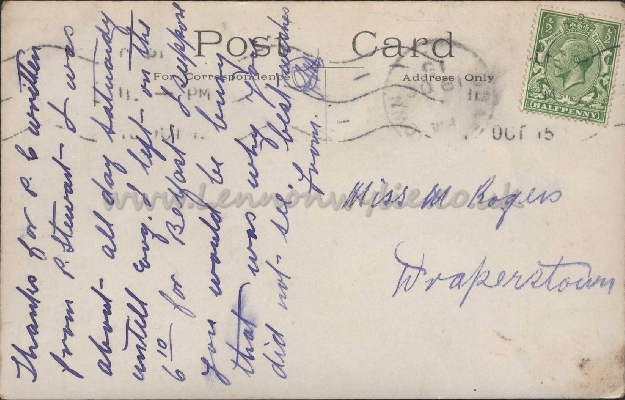 Post Card
For Correspondence
Address Only
HALFPENNY
OCT 15
PM
www.Lennonwylie.co.uk
Thanks for P. C written
from P. Stewart - I was
about - all day Saturday
untill evng. I left - on the
6 10 for Belfast I suppose
you would be busy
that was why you
did not - see best wishes
from.
Miss M Rogers
Draperstown